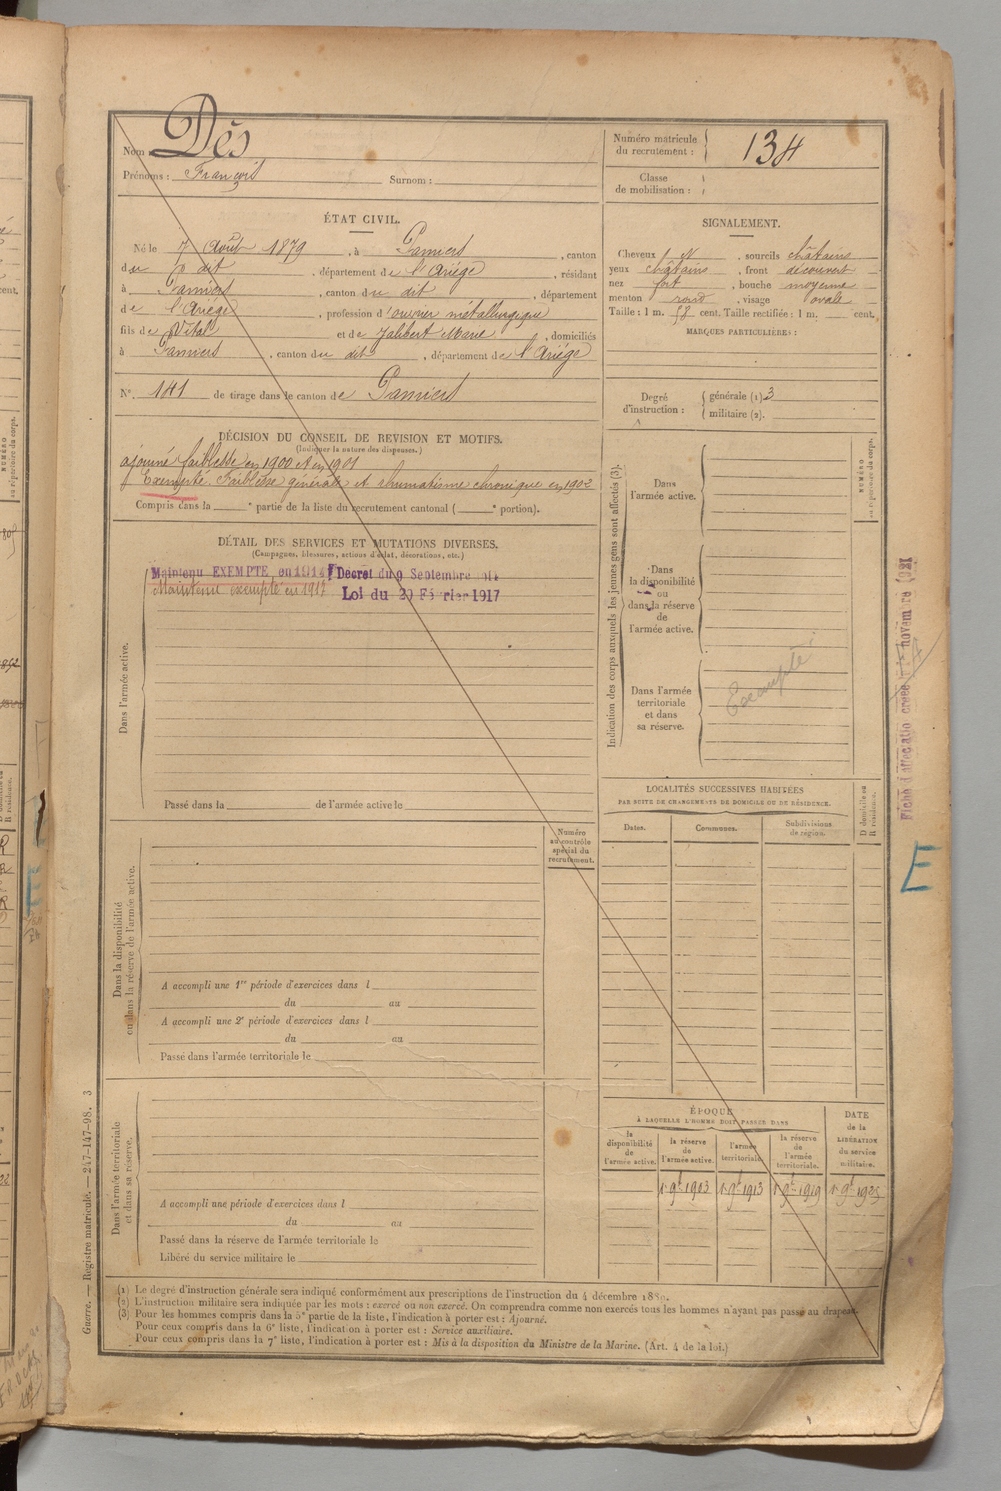 Nom : Dès
Prénoms : François Surnom :
Numéro matricule du recrutement : 134
Classe de mobilisation :
ÉTAT CIVIL.
Né le 7 Août 1879, à Pamiers, canton
du dit, département de l'Ariège, résidant
à Pamiers, canton du dit, département
de l'Ariège, profession d'ouvrier métallurgique
fils de Vital et de Jalibert Marie, domiciliés
à Pamiers, canton du dit, département de l'Ariège
N° 141 de tirage dans le canton de Pamiers
SIGNALEMENT.
Cheveux N, sourcils châtains
yeux châtains, front découvert
nez fort, bouche moyenne
menton rond, visage ovale
Taille : 1 m. 58 cent. Taille rectifiée : 1 m. cent.
MARQUES PARTICULIÈRES :
Degré d'instruction : générale (1) 3
militaire (2).
DÉCISION DU CONSEIL DE REVISION ET MOTIFS.
(Indiquer la nature des dispenses.)
ajourné faiblesse en 1900 et en 1901
Exempté. Faiblesse générale et rhumatisme chronique en 1902
Compris dans la e partie de la liste du recrutement cantonal ( e portion).
DÉTAIL DES SERVICES ET MUTATIONS DIVERSES.
(Campagnes, blessures, actions d'éclat, décorations, etc.)
Maintenu EXEMPTE en 1914 Décret du 9 Septembre 1914
Maintenu exempté en 1917 Loi du 20 Février 1917
Dans l'armée active.
Passé dans la de l'armée active le
Numéro au contrôle spécial du recrutement.
Dans la disponibilité ou dans la réserve de l'armée active.
A accompli une 1re période d'exercices dans l
du au
A accompli une 2e période d'exercices dans l
du au
Passé dans l'armée territoriale le
Dans l'armée territoriale et dans sa réserve.
A accompli une période d'exercices dans l
du au
Passé dans la réserve de l'armée territoriale le
Libéré du service militaire le
Indication des corps auxquels les jeunes gens sont affectés (3).
NUMÉRO au répertoire du corps.
Dans l'armée active.
Dans la disponibilité ou dans la réserve de l'armée active.
Dans l'armée territoriale et dans sa réserve.
Exempté
LOCALITÉS SUCCESSIVES HABITÉES
PAR SUITE DE CHANGEMENTS DE DOMICILE OU DE RÉSIDENCE.
Dates. Communes. Subdivisions de région.
D domicile ou R résidence.
ÉPOQUE
À LAQUELLE L'HOMME DOIT PASSER DANS
la disponibilité de l'armée active.
la réserve de l'armée active.
l'armée territoriale.
la réserve de l'armée territoriale.
DATE de la LIBÉRATION du service militaire.
1er 9bre 1903 1er 9bre 1913 1er 9bre 1919 1er 9bre 1925
Fiche d'affectation créée 1er novembre 1921
E
(1) Le degré d'instruction générale sera indiqué conformément aux prescriptions de l'instruction du 4 décembre 1889.
(2) L'instruction militaire sera indiquée par les mots : exercé ou non exercé. On comprendra comme non exercés tous les hommes n'ayant pas passé au drapeau.
(3) Pour les hommes compris dans la 5e partie de la liste, l'indication à porter est : Ajourné.
Pour ceux compris dans la 6e liste, l'indication à porter est : Service auxiliaire.
Pour ceux compris dans la 7e liste, l'indication à porter est : Mis à la disposition du Ministre de la Marine. (Art. 4 de la loi.)
Guerre. — Registre matricule. — 247-147-98. 3